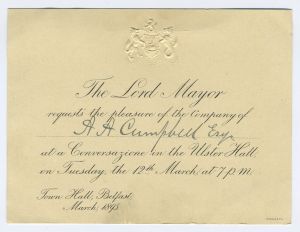 The Lord Mayor
requests the pleasure of the Company of
A A Campbell Esq
at a Conversazione in the Ulster Hall,
on Tuesday, the 12th March, at 7 p.m.
Town Hall, Belfast,
March, 1895.